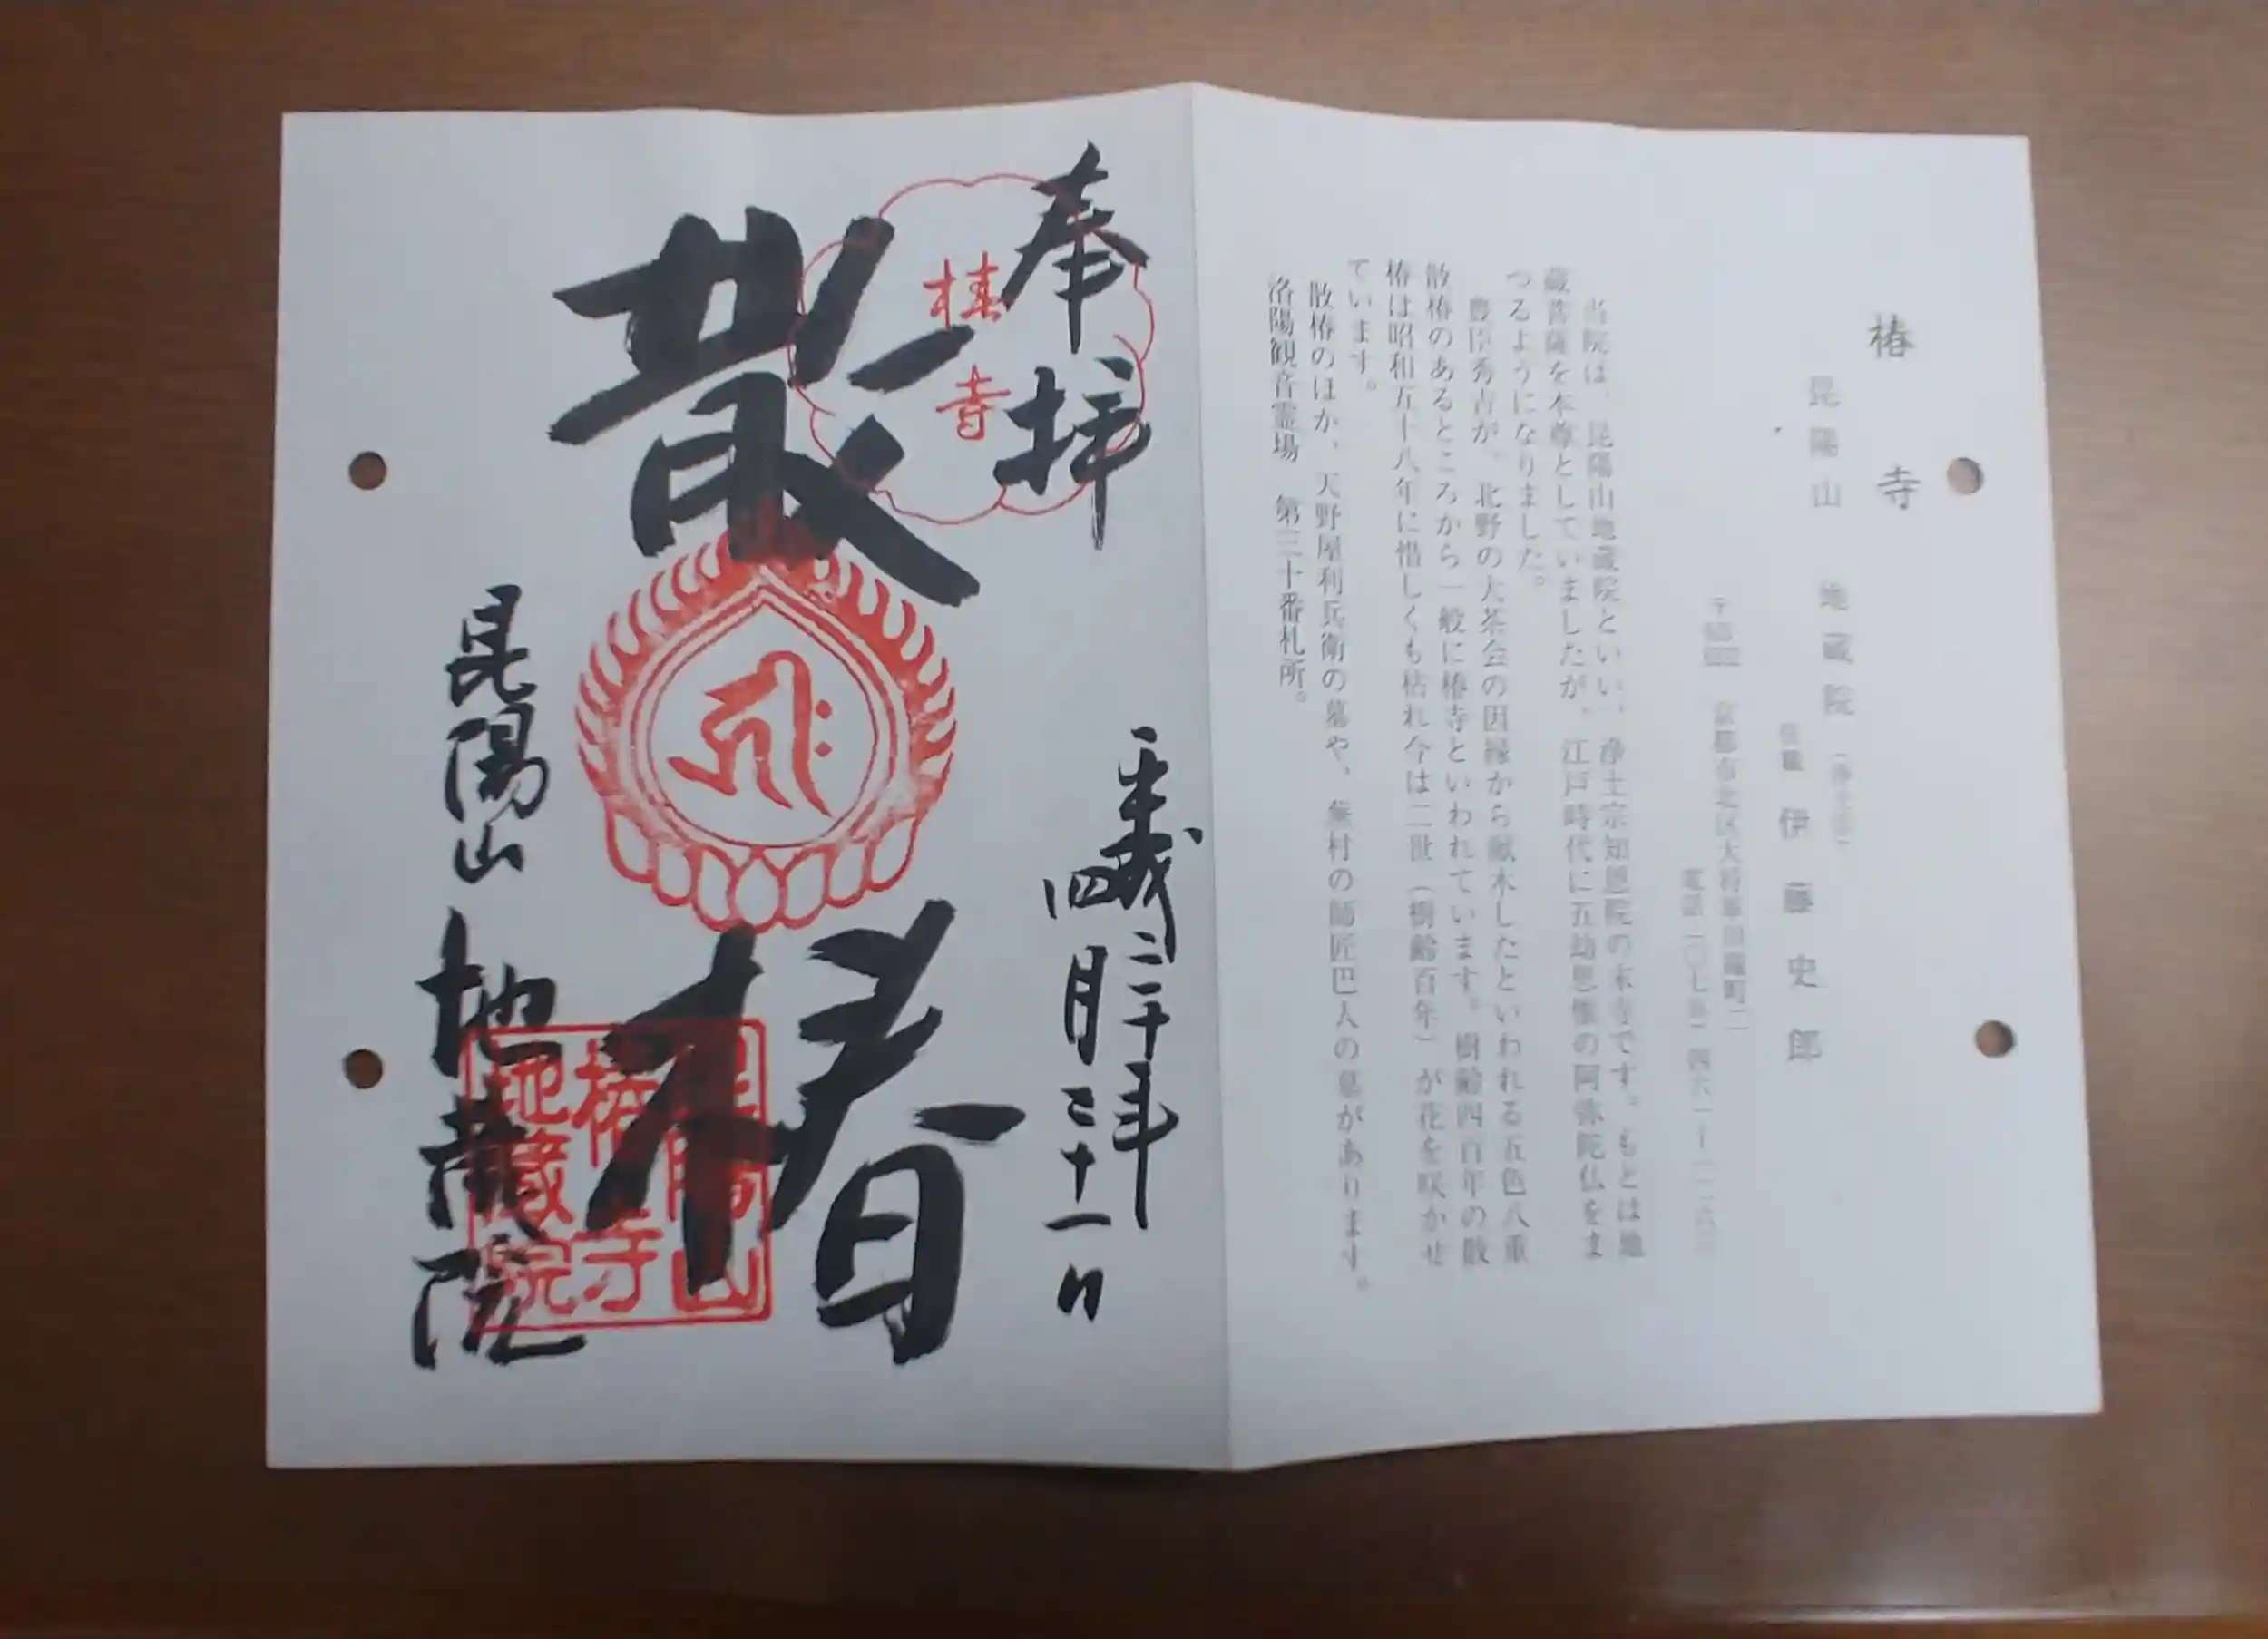 椿寺
昆陽山 地蔵院 (浄土宗)
住職 伊藤史郎
京都市北区大将軍川端町二
電話(〇七五)四六一ー一二六三
当院は、昆陽山地蔵院といい、浄土宗知恩院の末寺です。もとは地
蔵菩薩を本尊としていましたが、江戸時代に五劫思惟の阿弥陀仏をま
つるようになりました。
豊臣秀吉が、北野の大茶会の因縁から献木したといわれる五色八重
散椿のあるところから一般に椿寺といわれています。樹齢四百年の散
椿は昭和五十八年に惜しくも枯れ今は二世(樹齢百年)が花を咲かせ
ています。
散椿のほか、天野屋利兵衛の墓や、蕪村の師匠巴人の墓があります。
洛陽観音霊場 第三十番札所。
奉拝
椿寺
平成二十年
四月三十一日
散椿
昆陽山 地蔵院
昆陽山
椿寺
地蔵院